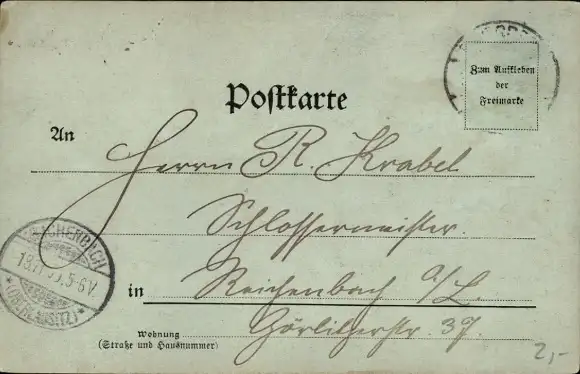 Zum Aufkleben
der
Freimarke
Postkarte
An
Herrn R. Krabel
Schlossermeister.
in Reichenbach a/L.
Wohnung
(Straße und Hausnummer)
Görlitzerstr. 37.
REICHENBACH
(OBERLAUSITZ)
2,-